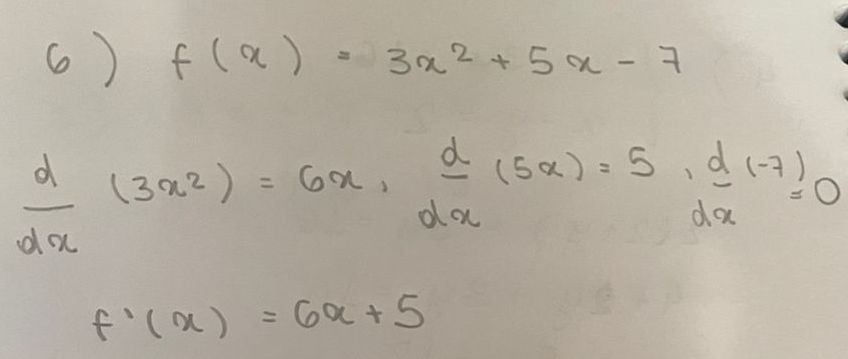 6) f(x) = 3x² + 5x - 7
d/dx (3x²) = 6x, d/dx (5x) = 5, d/dx (-7) = 0
f'(x) = 6x + 5